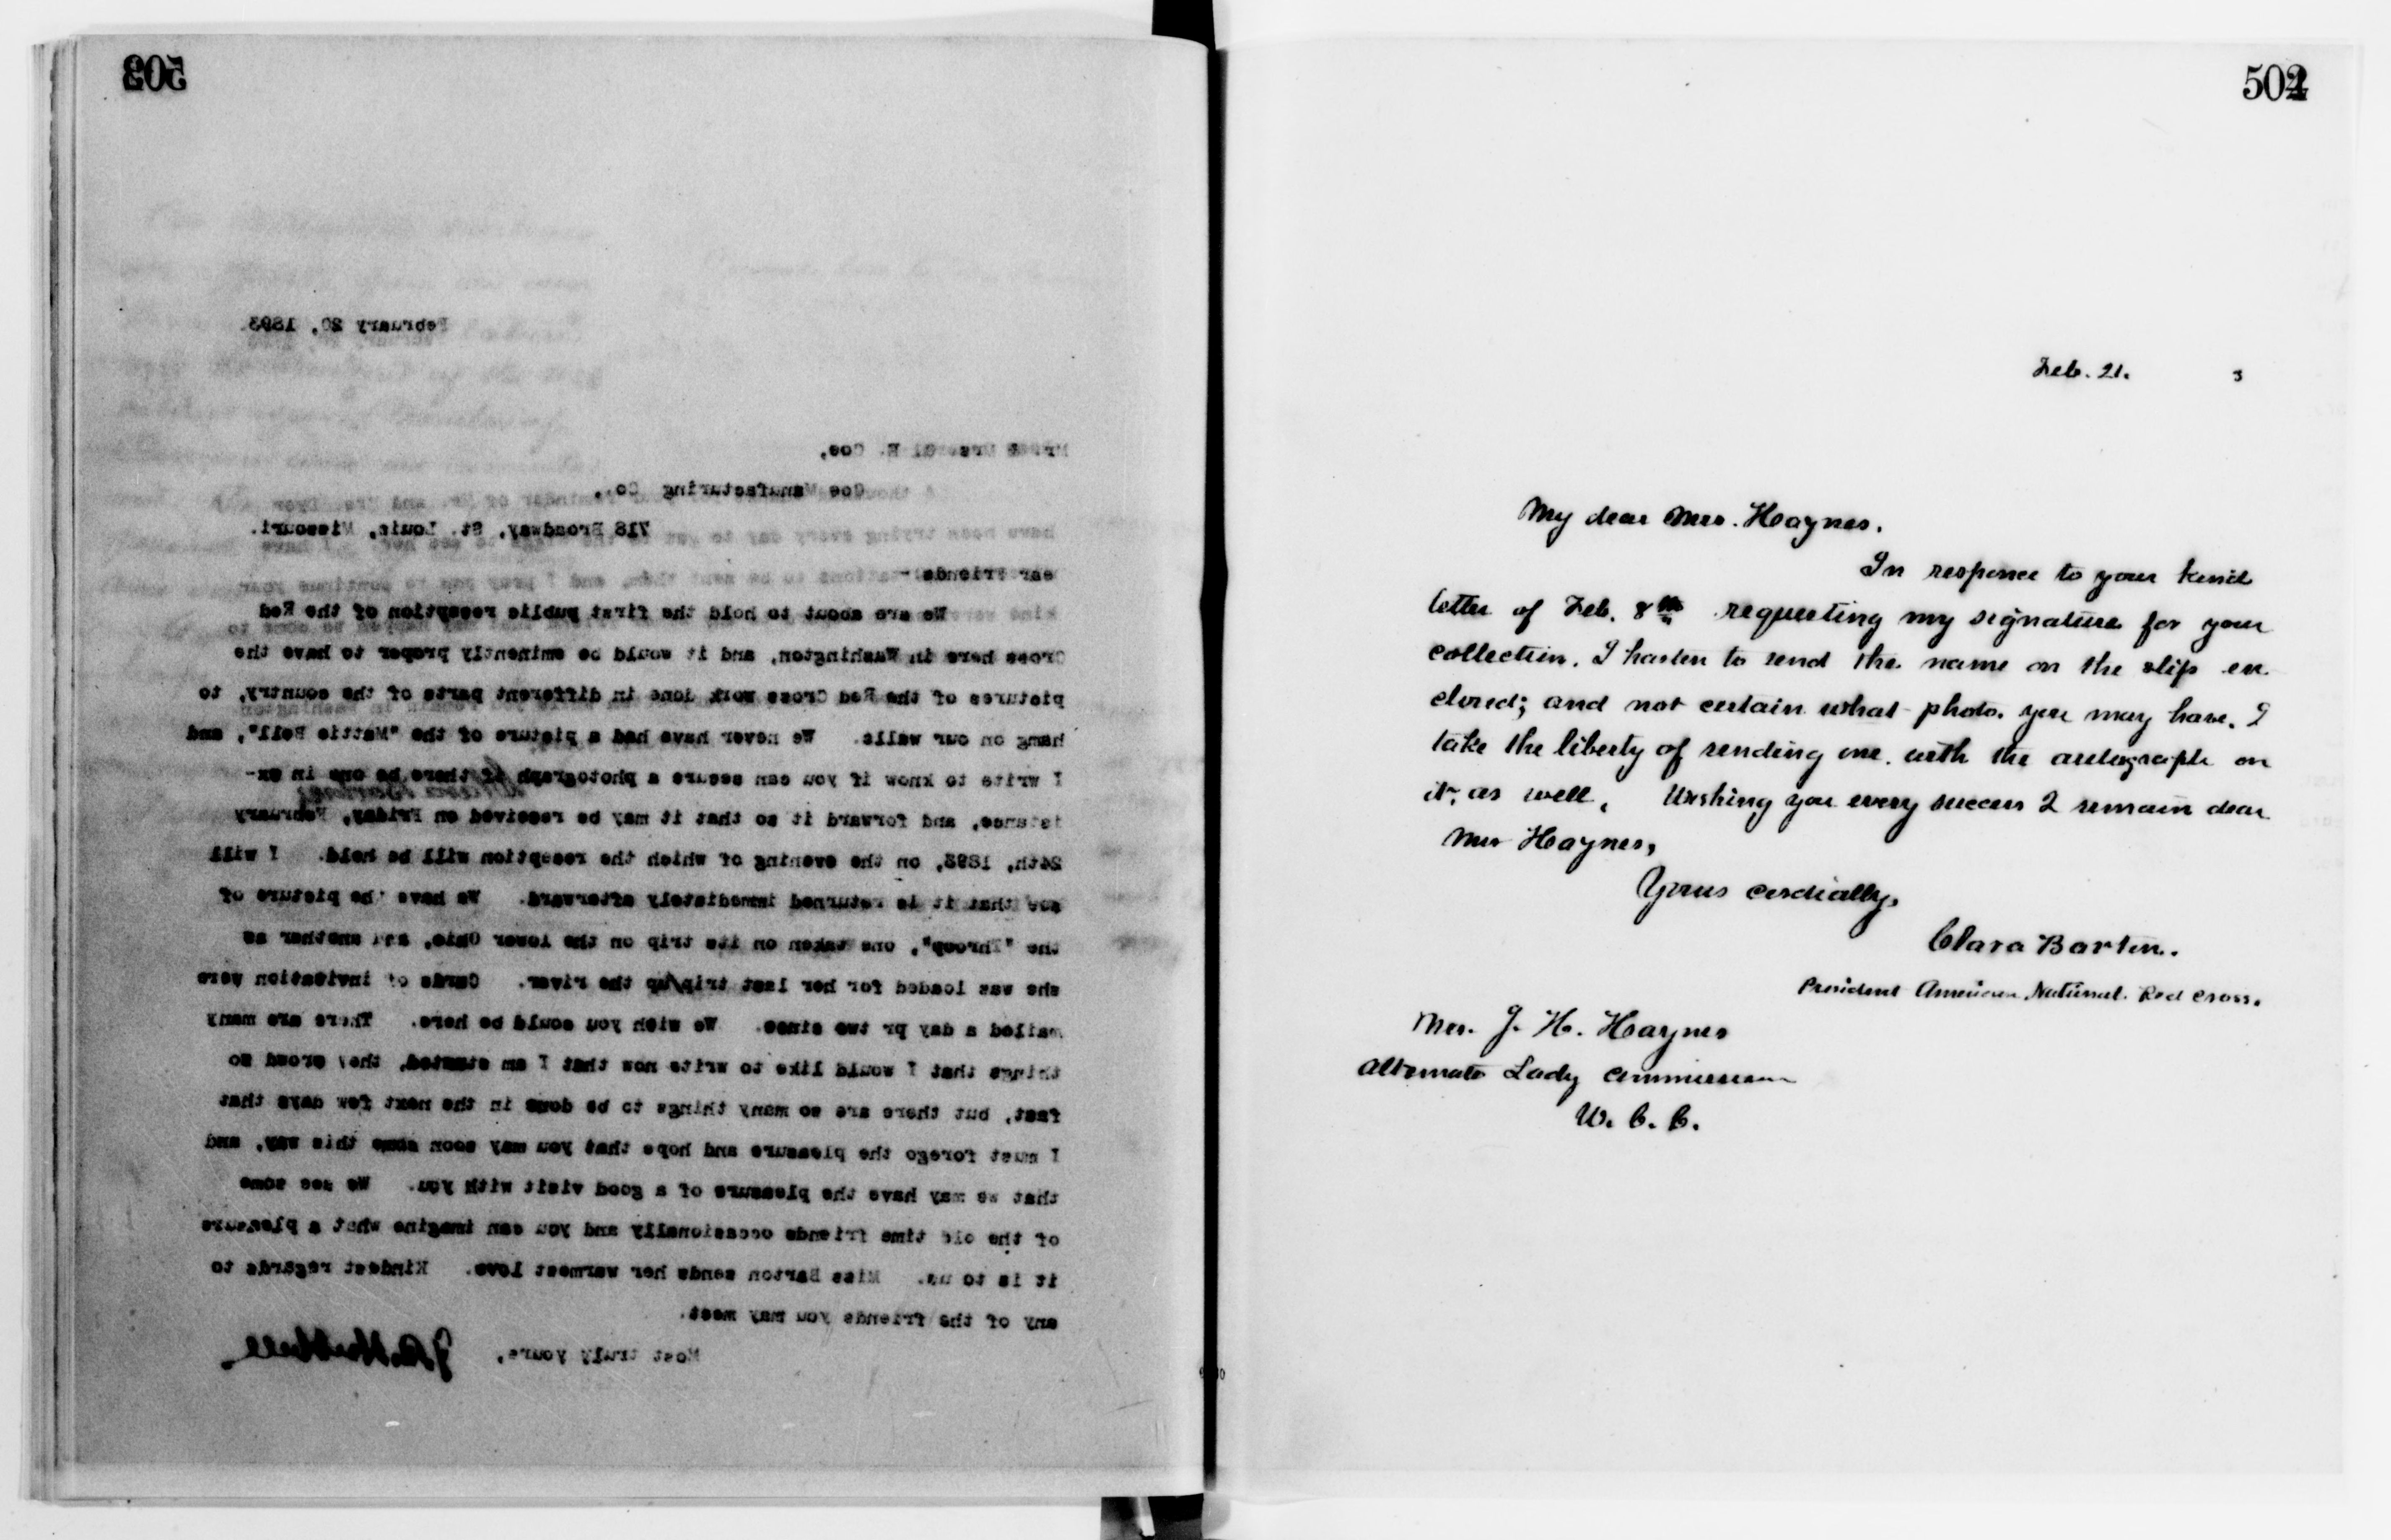 503
February 20, 1893.
Coe,
Coe Manufacturing Co.,
718 Broadway, St. Louis, Missouri.
ear Friends-
We are about to hold the first public reception of the Red
Cross here in Washington, and it would be eminently proper to have the
pictures of the Red Cross work done in different parts of the country, to
hang on our walls. We never have had a picture of the "Mattie Bell", and
I write to know if you can secure a photograph if there be one in ex-
istance, and forward it so that it may be received on Friday, February
24th, 1893, on the evening of which the reception will be held. I will
see that it is returned immediately afterward. We have the picture of
the "Throop", one taken on its trip on the lower Ohio, and another as
she was loaded for her last trip/up the river. Cards of invitation were
mailed a day pr two since. We wish you could be here. There are many
things that I would like to write now that I am started, they crowd so
fast, but there are so many things to be done in the next few days that
I must forego the pleasure and hope that you may soon come this way, and
that we may have the pleasure of a good visit with you. We see some
of the old time friends occasionally and you can imagine what a pleasure
it is to us. Miss Barton sends her warmest love. Kindest regards to
any of the friends you may meet.
Most truly yours, J.B. Hubbell
504
Feb. 21. 3
My dear Mrs. Haynes.
In responce to your kind
letter of Feb. 8th requesting my signature for your
collection. I hasten to send the name on the slip en
closed; and not certain what photo. you may have. I
take the liberty of sending one. with the autograph on
it, as well. Wishing you every success I remain dear
Mrs Haynes,
Yours cordially,
Clara Barton.
President American National Red Cross.
Mrs. J. H. Haynes
Alternate Lady Commission
W. C. C.